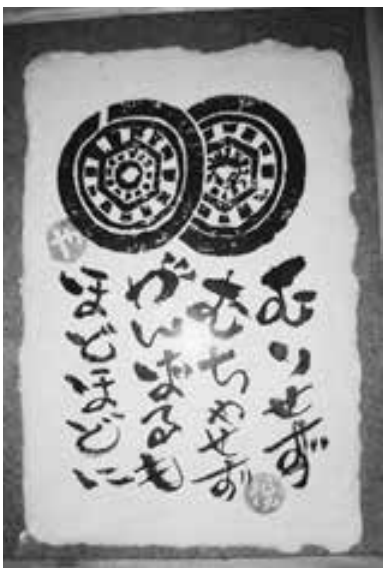 むりせず
むちゃせず
がんばるも
ほどほどに